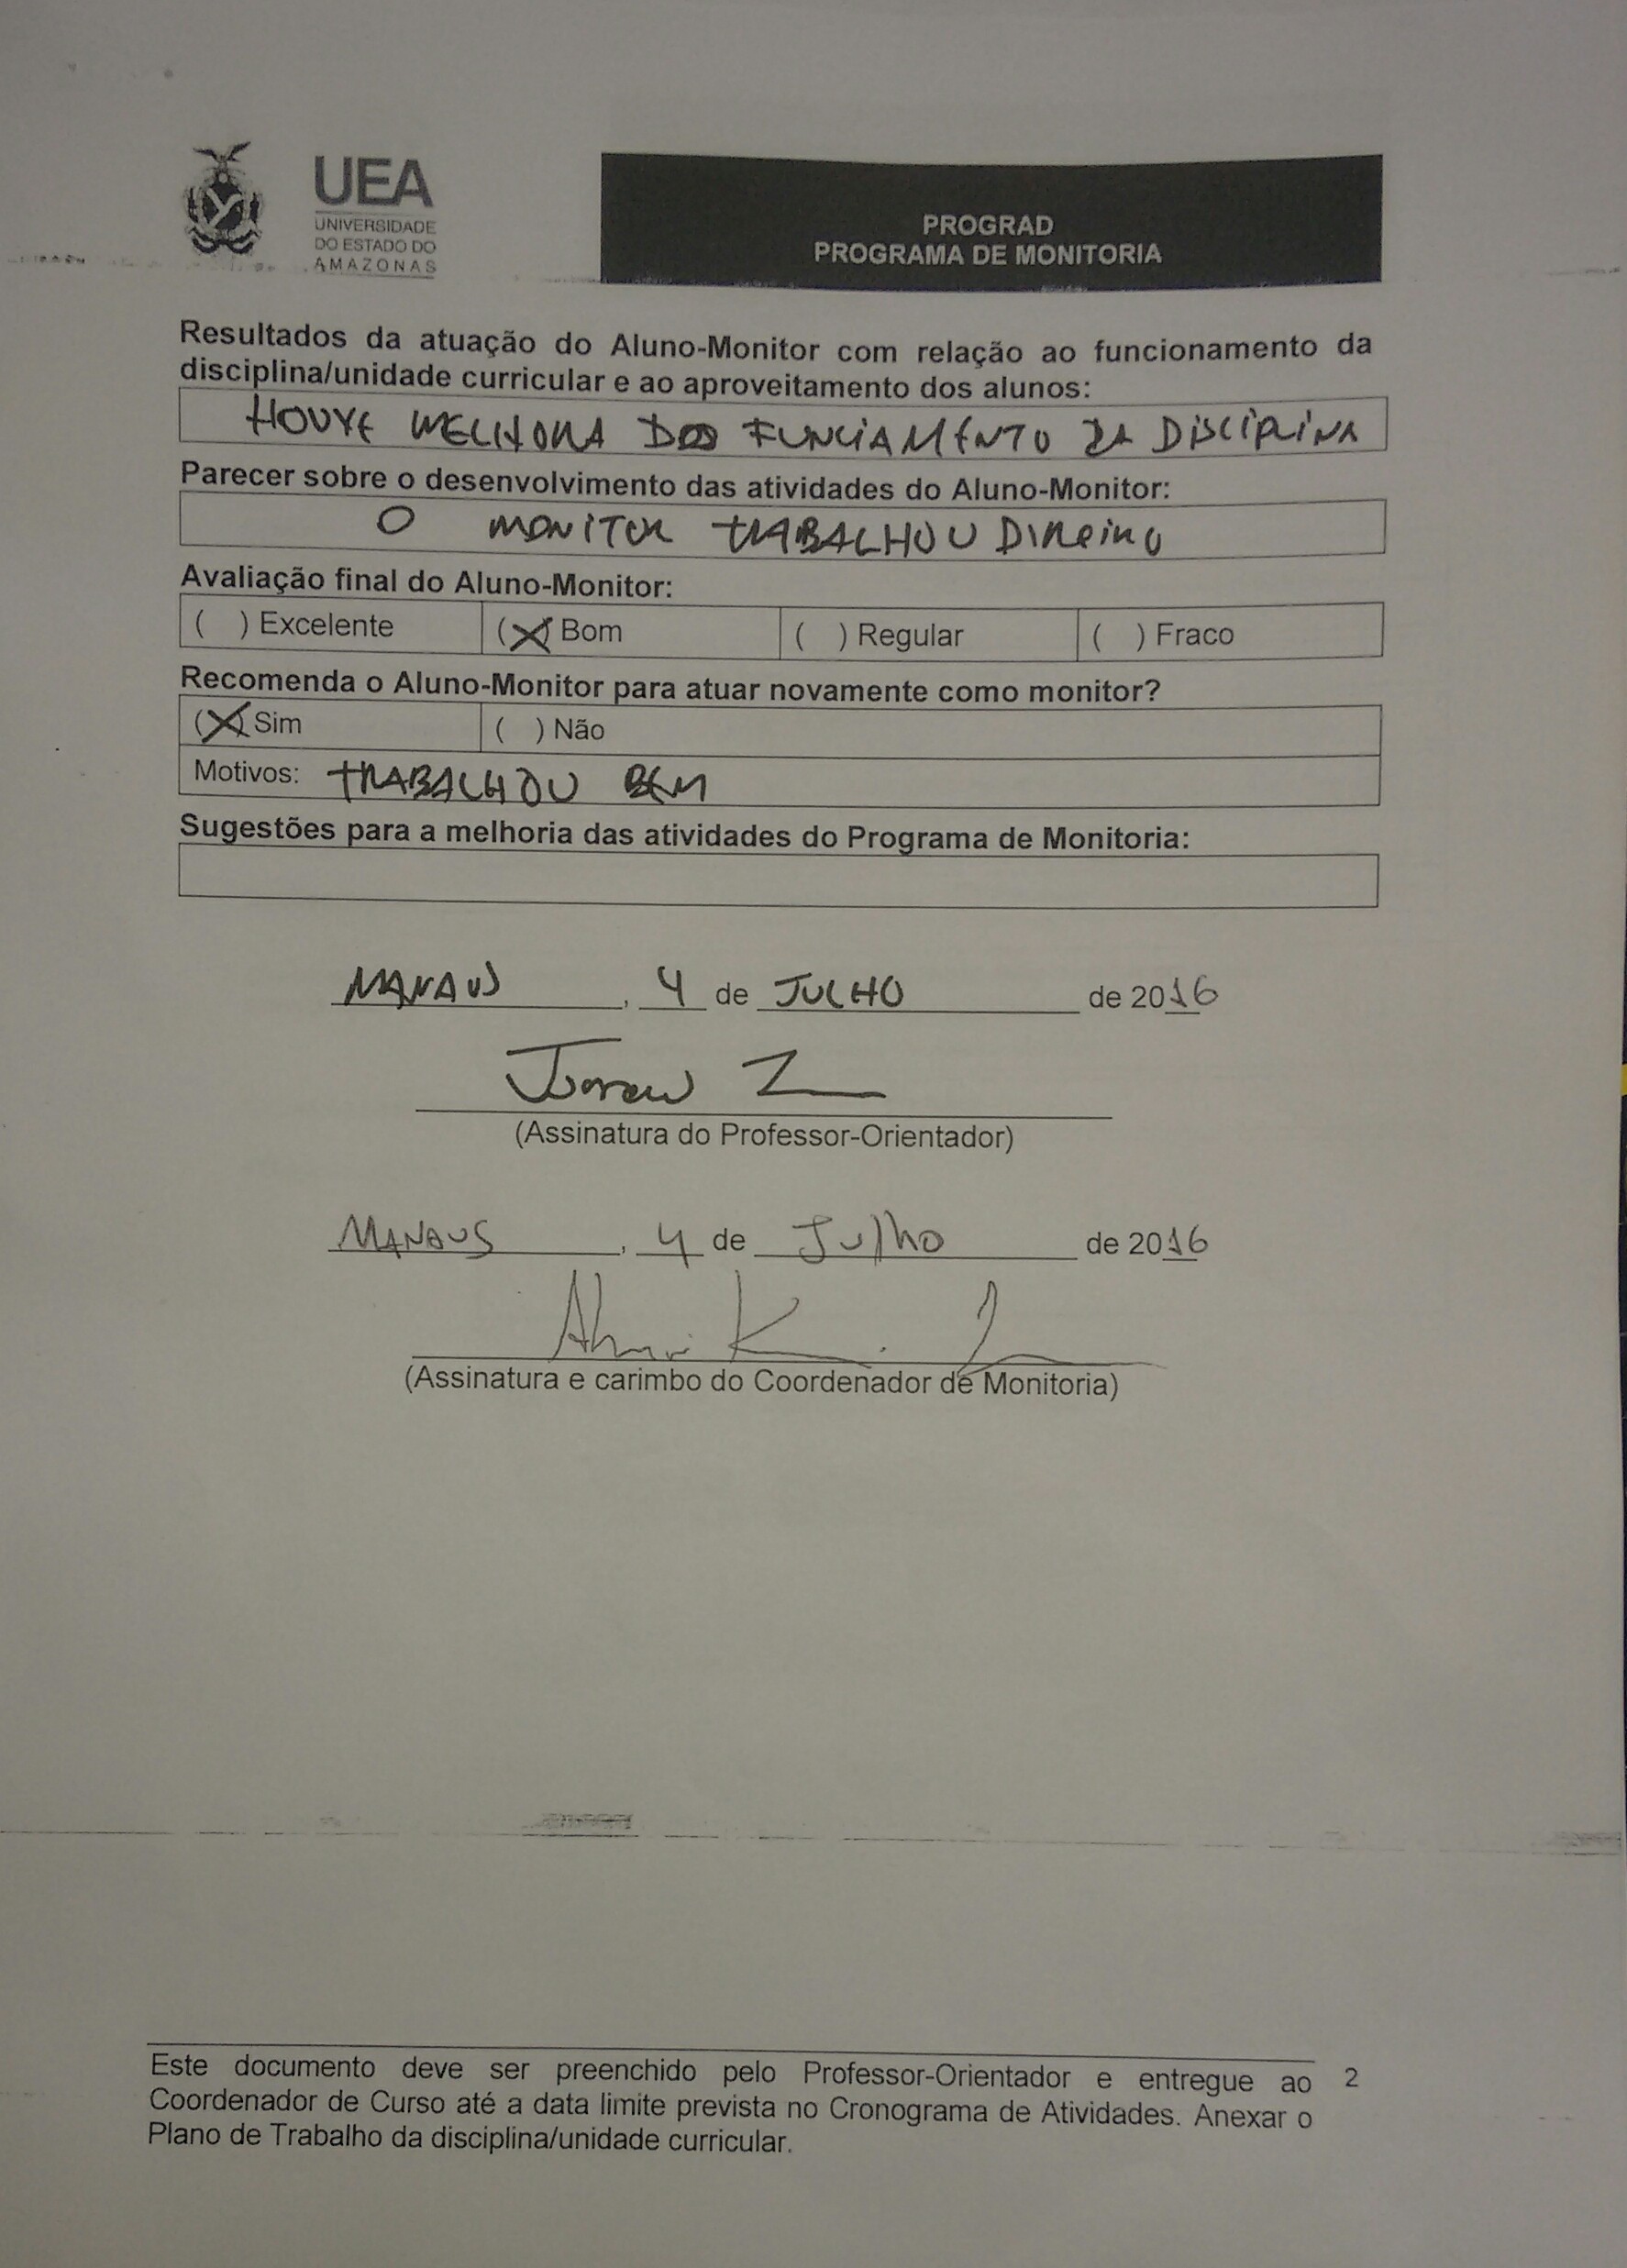 UEA
UNIVERSIDADE
DO ESTADO DO
AMAZONAS
PROGRAD
PROGRAMA DE MONITORIA
Resultados da atuação do Aluno-Monitor com relação ao funcionamento da
disciplina/unidade curricular e ao aproveitamento dos alunos:
HOUVE MELHORA DO FUNCIAMENTO DA DISCIPLINA
Parecer sobre o desenvolvimento das atividades do Aluno-Monitor:
O MONITOR TRABALHOU DIREITO
Avaliação final do Aluno-Monitor:
( ) Excelente (X) Bom ( ) Regular ( ) Fraco
Recomenda o Aluno-Monitor para atuar novamente como monitor?
(X) Sim ( ) Não
Motivos: TRABALHOU BEM
Sugestões para a melhoria das atividades do Programa de Monitoria:
MANAUS, 4 de JULHO de 2016
(Assinatura do Professor-Orientador)
MANAUS, 4 de Julho de 2016
(Assinatura e carimbo do Coordenador de Monitoria)
Este documento deve ser preenchido pelo Professor-Orientador e entregue ao 2
Coordenador de Curso até a data limite prevista no Cronograma de Atividades. Anexar o
Plano de Trabalho da disciplina/unidade curricular.